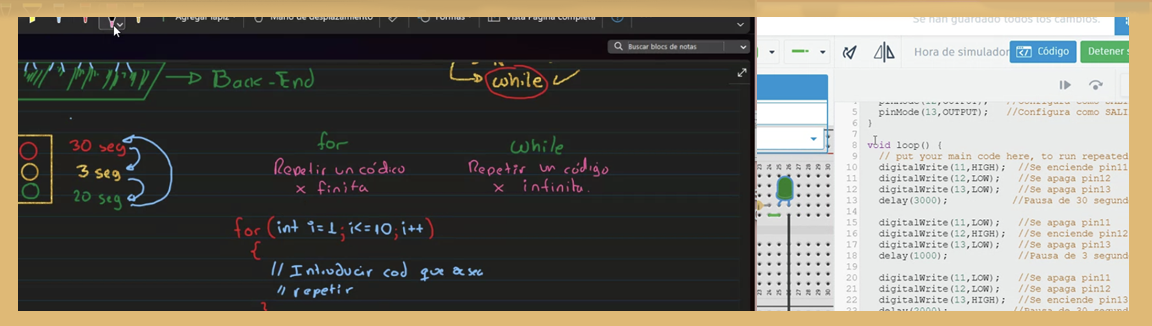 Agregar lápiz
Mano de desplazamiento
Formas
Vista Página completa
Buscar blocs de notas
Back-End
while
30 seg
3 seg
20 seg
for
Repetir un códico
x finita
while
Repetir un código
x infinita.
for (int i=1; i<=10; i++)
{
// Introducir cod que
// repetir
}
Se han guardado todos los cambios.
Hora de simulador
Código
Detener s
4 pinMode(12,OUTPUT); //Configura como SALI
5 pinMode(13,OUTPUT); //Configura como SALI
6 }
7
8 void loop() {
9 // put your main code here, to run repeated
10 digitalWrite(11,HIGH); //Se enciende pin11
11 digitalWrite(12,LOW); //Se apaga pin12
12 digitalWrite(13,LOW); //Se apaga pin13
13 delay(3000); //Pausa de 30 segund
14
15 digitalWrite(11,LOW); //Se apaga pin11
16 digitalWrite(12,HIGH); //Se enciende pin12
17 digitalWrite(13,LOW); //Se apaga pin13
18 delay(1000); //Pausa de 3 segund
19
20 digitalWrite(11,LOW); //Se apaga pin11
21 digitalWrite(12,LOW); //Se apaga pin12
22 digitalWrite(13,HIGH); //Se enciende pin13